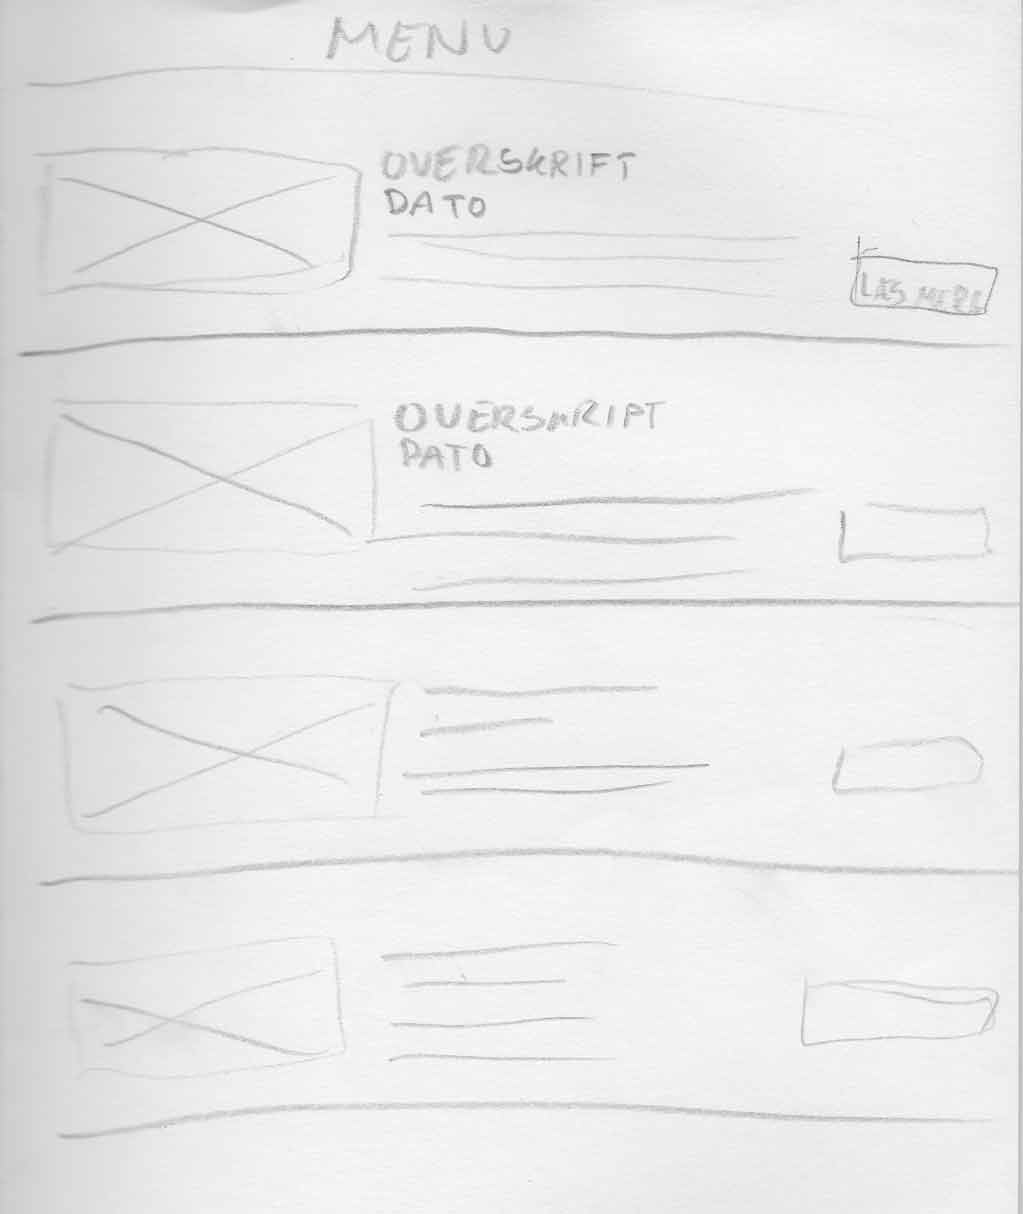 MENU
OVERSKRIFT
DATO
LÆS MERE
OVERSKRIFT
DATO